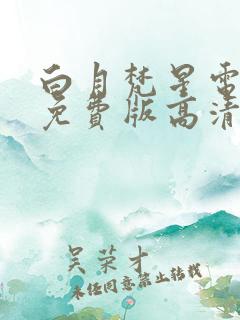 白月梵星電
免費版高清
吴荣才
未经同意禁止转载